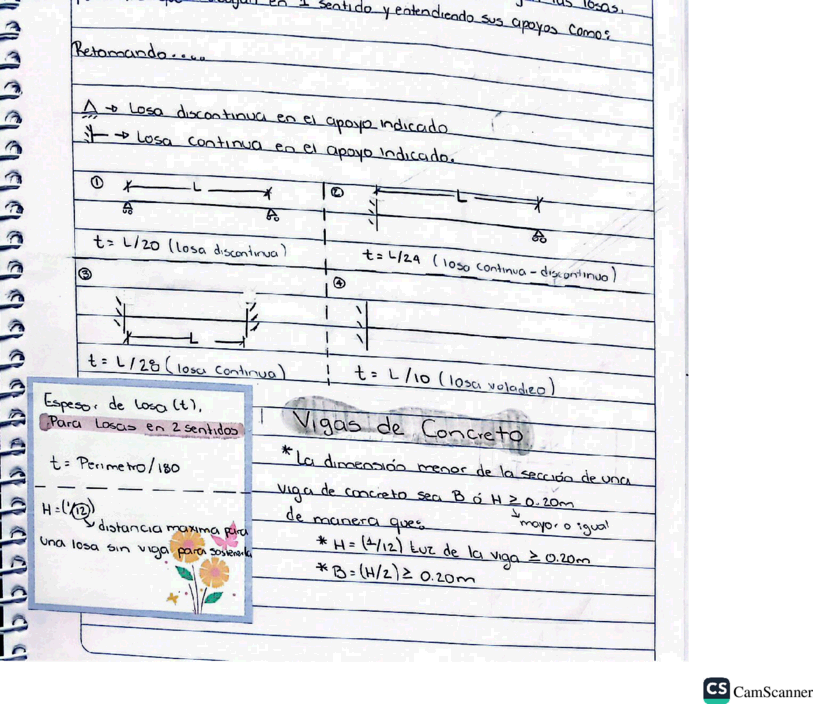 en 1 sentido y entendiendo sus apoyos como:
losas.
Retomando....
→ Losa discontinua en el apoyo indicado
→ Losa continua en el apoyo indicado.
① L
② L
t = L/20 (losa discontinua)
t = L/24 (losa continua - discontinua)
③
④
L
t = L/28 (losa continua)
t = L/10 (losa voladizo)
Espesor de losa (t),
Para Losas en 2 sentidos
t = Perimetro/180
H = (1/12)
distancia maxima para
una losa sin viga para sostenerla
Vigas de Concreto
* La dimensión menor de la sección de una
viga de concreto sea B ó H ≥ 0.20m
mayor o igual
de manera que:
* H = (1/12) Luz de la viga ≥ 0.20m
* B = (H/2) ≥ 0.20m
CS CamScanner